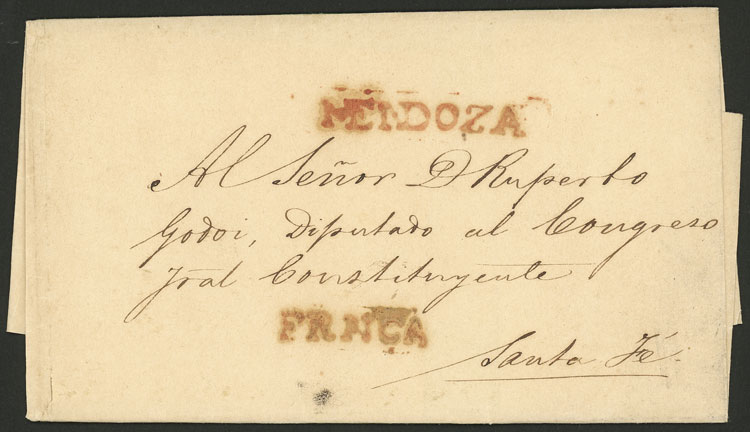 MENDOZA
Al Señor D Ruperto
Godoi, Diputado al Congreso
Jral Constituyente
FRANCA
Santa Fé.